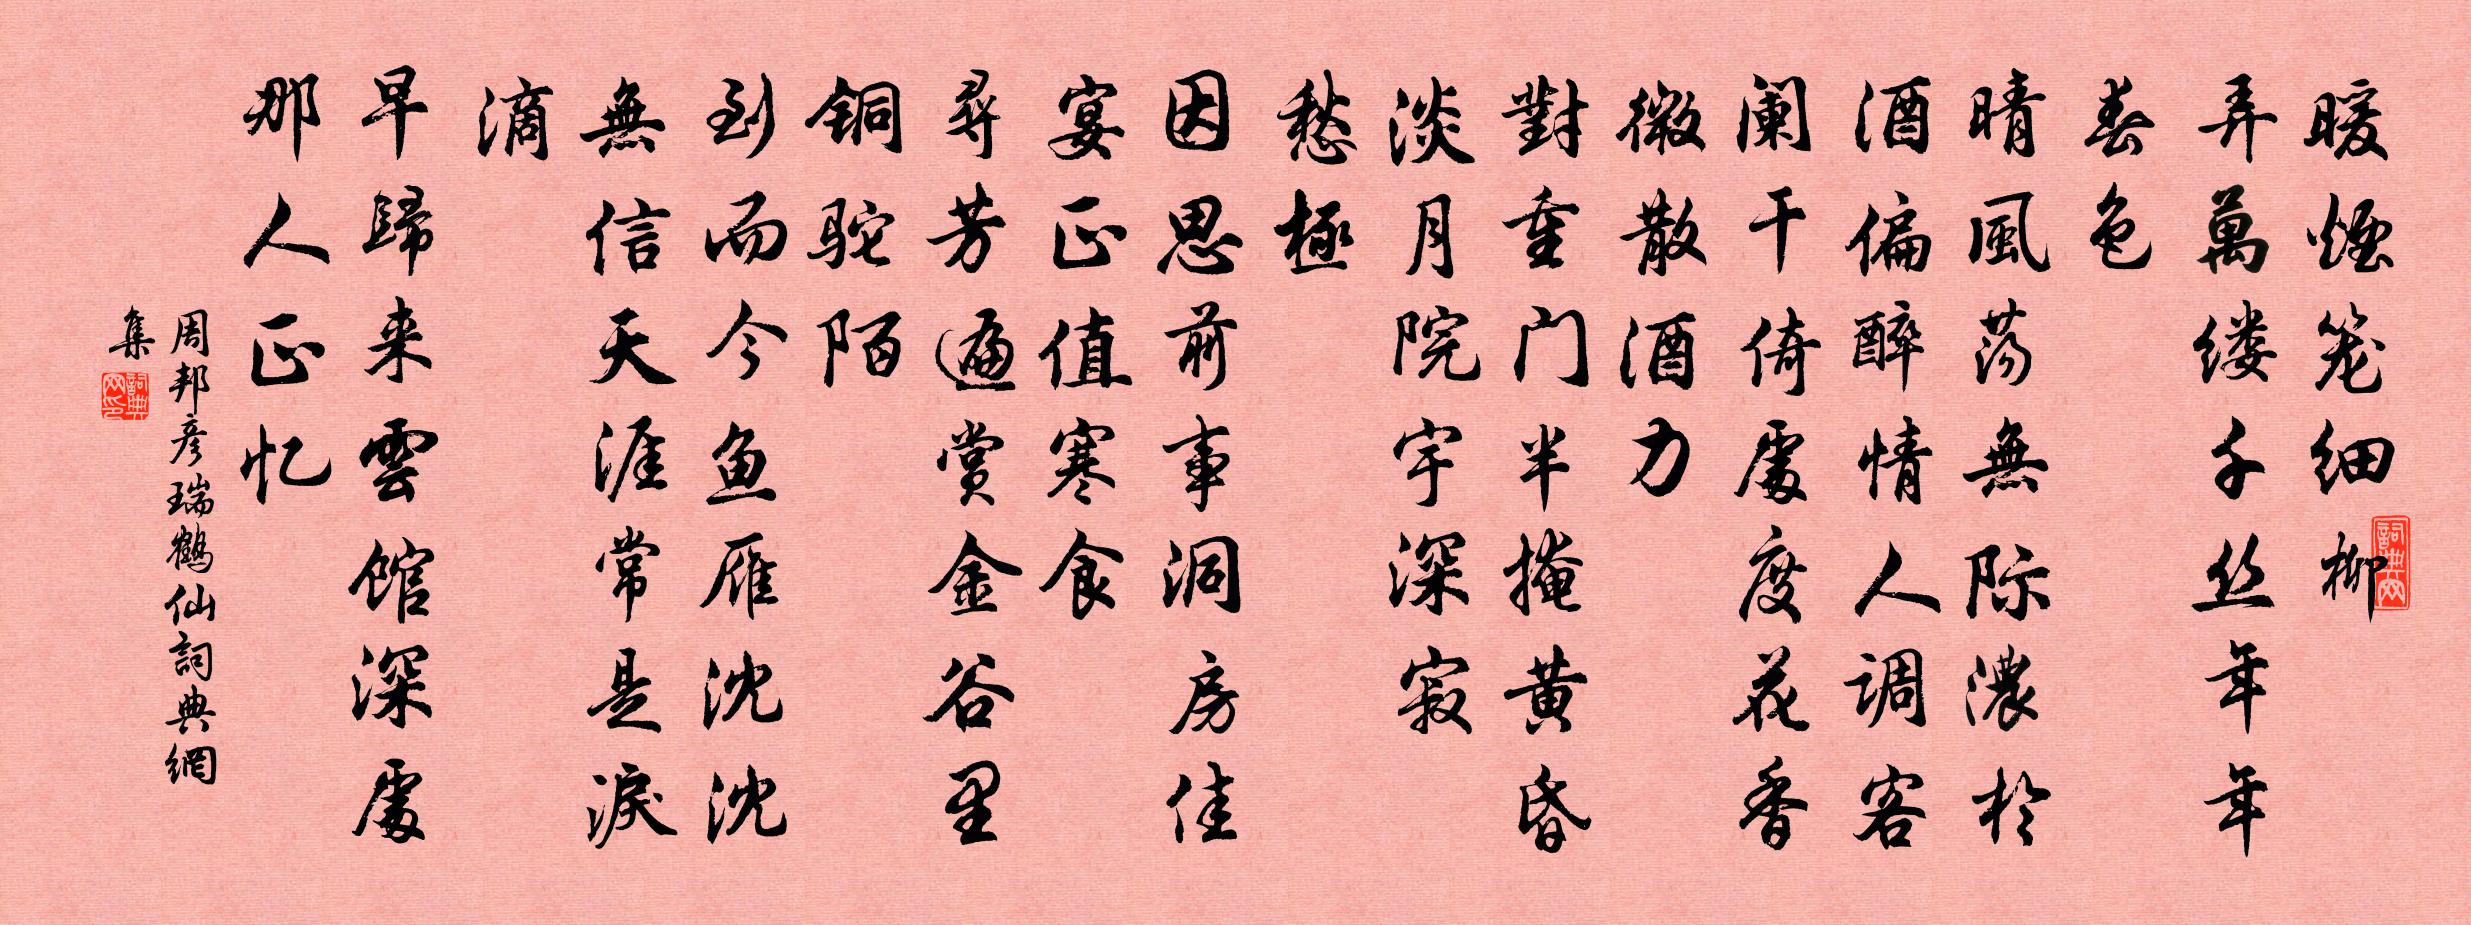 暖煙笼细柳
弄萬缕千丝年年
春色
晴風荡無际濃於
酒偏醉情人调客
阑干倚處度花香
微散酒力
對重门半掩黄昏
淡月院宇深寂
愁極
因思前事洞房佳
宴正值寒食
尋芳遍赏金谷里
铜驼陌
到而今鱼雁沈沈
無信天涯常是淚
滴
早歸来雲馆深處
那人正忆
周邦彦瑞鶴仙詞典網
集
詞典网
詞典网印